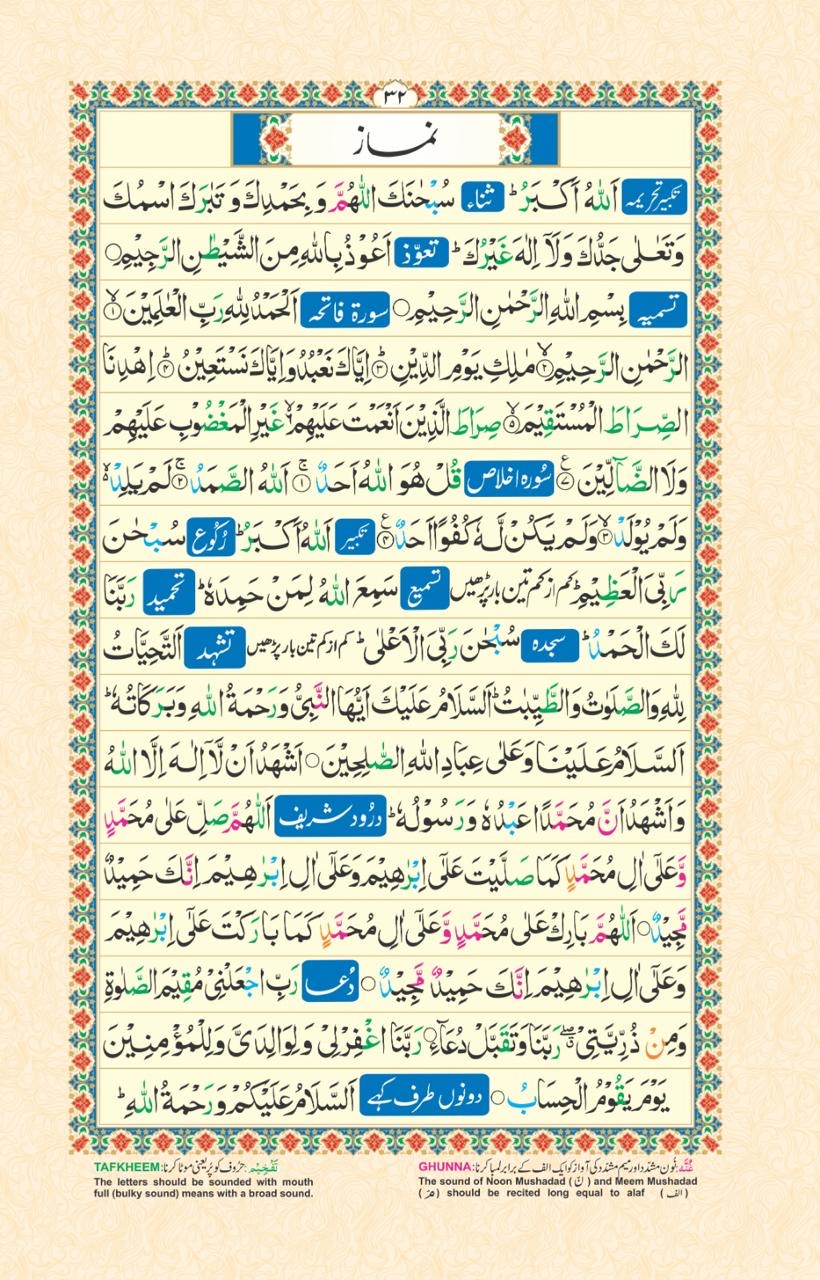 ۳۲
نماز
تکبیر تحریمہ اَللّٰهُ اَكْبَرُؕ ثناء سُبْحٰنَكَ اللّٰهُمَّ وَ بِحَمْدِكَ وَ تَبٰرَكَ اسْمُكَ
وَتَعٰلٰى جَدُّكَ وَلَآ اِلٰهَ غَيْرُكَؕ تعوّذ اَعُوْذُ بِاللّٰهِ مِنَ الشَّيْطٰنِ الرَّجِيْمِ○
تسمیہ بِسْمِ اللّٰهِ الرَّحْمٰنِ الرَّحِيْمِ○ سورة فاتحہ اَلْحَمْدُ لِلّٰهِ رَبِّ الْعٰلَمِيْنَۙ۱
الرَّحْمٰنِ الرَّحِيْمِۙ۲ مٰلِكِ يَوْمِ الدِّيْنِ۳ اِيَّاكَ نَعْبُدُ وَاِيَّاكَ نَسْتَعِيْنُ۴ اِهْدِنَا
الصِّرَاطَ الْمُسْتَقِيْمَۙ۵ صِرَاطَ الَّذِيْنَ اَنْعَمْتَ عَلَيْهِمْ۬ۙ۶ غَيْرِ الْمَغْضُوْبِ عَلَيْهِمْ
وَلَا الضَّآلِّيْنَ۷ سُورہ اخلاص قُلْ هُوَ اللّٰهُ اَحَدٌۚ۱ اَللّٰهُ الصَّمَدُۚ۲ لَمْ يَلِدْ۬ۙ
وَلَمْ يُوْلَدْۙ۳ وَلَمْ يَكُنْ لَّهٗ كُفُوًا اَحَدٌ۴ تکبیر اَللّٰهُ اَكْبَرُؕ رُکُوع سُبْحٰنَ
رَبِّىَ الْعَظِيْمِؕ کم از کم تین بار پڑھیں تسمیع سَمِعَ اللّٰهُ لِمَنْ حَمِدَهٗؕ تحمید رَبَّنَا
لَكَ الْحَمْدُؕ سجدہ سُبْحٰنَ رَبِّىَ الْاَعْلٰىؕ کم از کم تین بار پڑھیں تشہد اَلتَّحِيَّاتُ
لِلّٰهِ وَالصَّلَوٰتُ وَالطَّيِّبٰتُؕ اَلسَّلَامُ عَلَيْكَ اَيُّهَا النَّبِىُّ وَرَحْمَةُ اللّٰهِ وَبَرَكَاتُهٗؕ
اَلسَّلَامُ عَلَيْنَا وَعَلٰى عِبَادِ اللّٰهِ الصّٰلِحِيْنَ○ اَشْهَدُ اَنْ لَّآ اِلٰهَ اِلَّا اللّٰهُ
وَاَشْهَدُ اَنَّ مُحَمَّدًا عَبْدُهٗ وَرَسُوْلُهٗؕ درُود شریف اَللّٰهُمَّ صَلِّ عَلٰى مُحَمَّدٍ
وَّعَلٰٓى اٰلِ مُحَمَّدٍ كَمَا صَلَّيْتَ عَلٰٓى اِبْرٰهِيْمَ وَعَلٰٓى اٰلِ اِبْرٰهِيْمَ اِنَّكَ حَمِيْدٌ
مَّجِيْدٌ○ اَللّٰهُمَّ بَارِكْ عَلٰى مُحَمَّدٍ وَّعَلٰٓى اٰلِ مُحَمَّدٍ كَمَا بَارَكْتَ عَلٰٓى اِبْرٰهِيْمَ
وَعَلٰٓى اٰلِ اِبْرٰهِيْمَ اِنَّكَ حَمِيْدٌ مَّجِيْدٌ○ دُعا رَبِّ اجْعَلْنِىْ مُقِيْمَ الصَّلٰوةِ
وَمِنْ ذُرِّيَّتِىْ۬ۖ رَبَّنَا وَتَقَبَّلْ دُعَآءِ○ رَبَّنَا اغْفِرْلِىْ وَلِوَالِدَىَّ وَلِلْمُؤْمِنِيْنَ
يَوْمَ يَقُوْمُ الْحِسَابُ○ دونوں طرف کہے اَلسَّلَامُ عَلَيْكُمْ وَرَحْمَةُ اللّٰهِؕ
غُنَّه: نُون مشدّد اور میم مشدّد کی آواز کو ایک الف کے برابر لمبا کرنا :GHUNNA
The sound of Noon Mushadad (نّ) and Meem Mushadad
(مّ) should be recited long equal to alaf (الف)
تَفْخِيْم: حرُوف کو پُر یعنی موٹا کرنا :TAFKHEEM
The letters should be sounded with mouth
full (bulky sound) means with a broad sound.